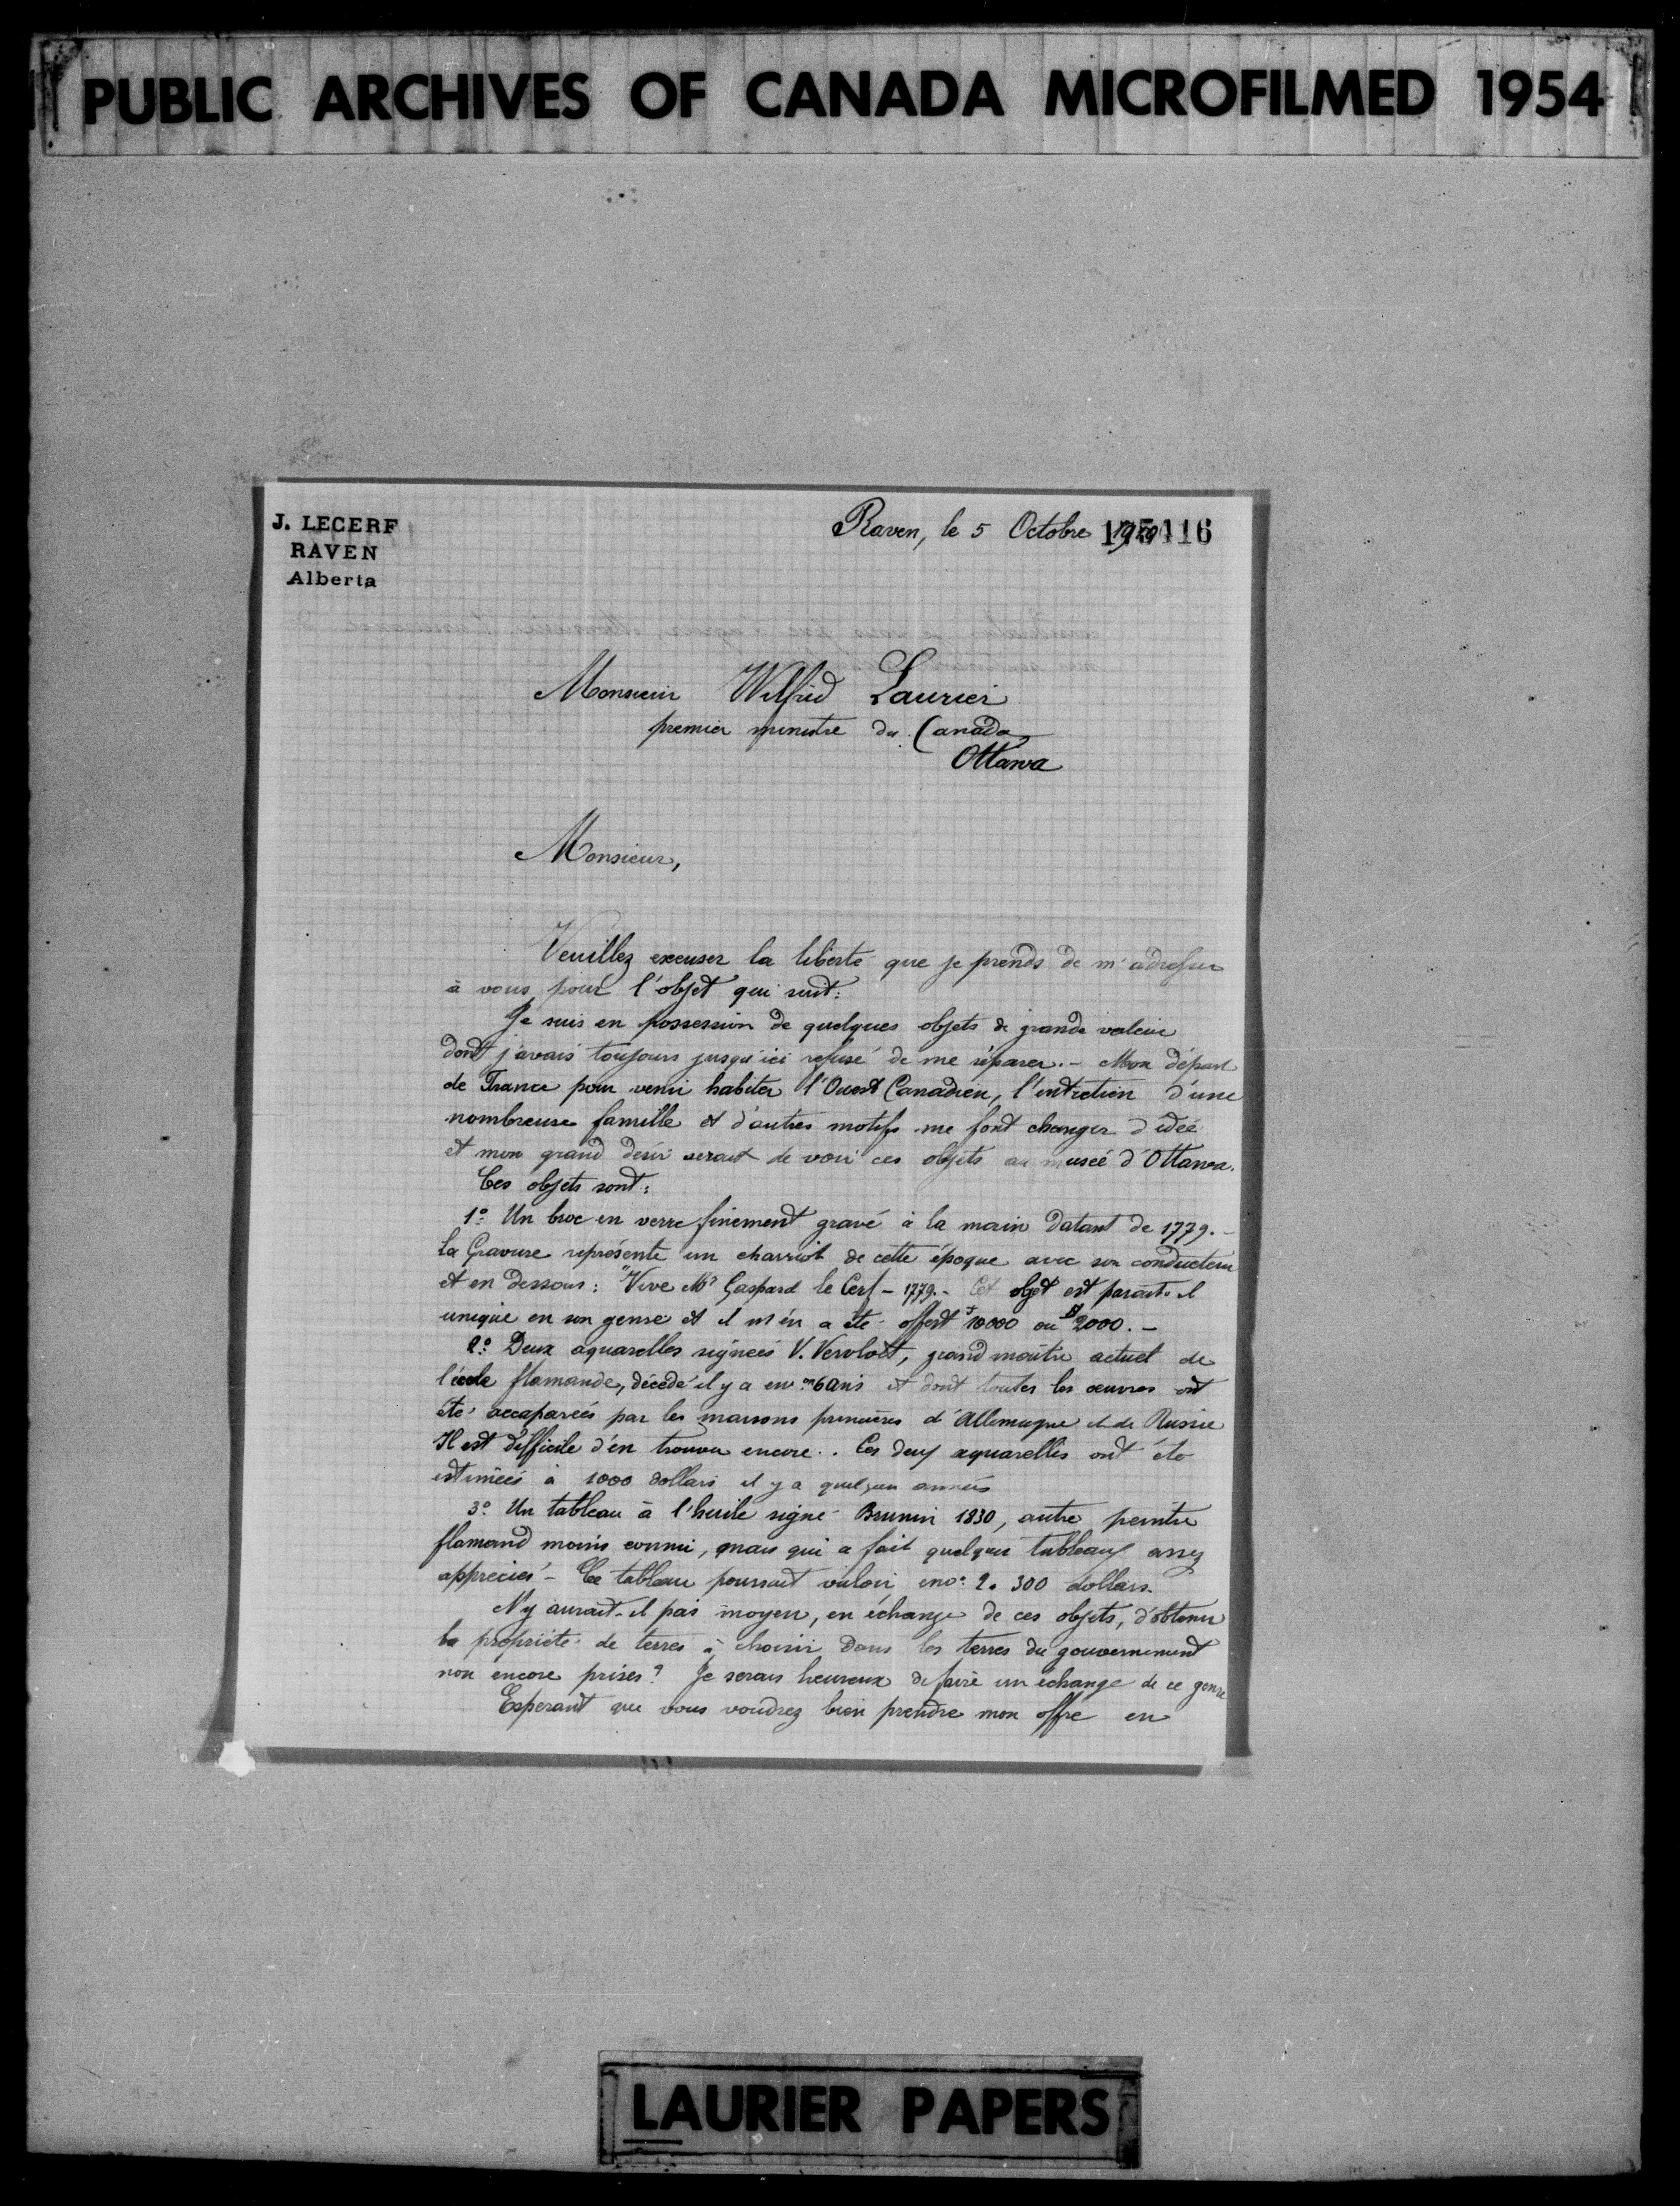 PUBLIC ARCHIVES OF CANADA MICROFILMED 1954
J. LECERF
RAVEN
Alberta
Raven, le 5 Octobre
Monsieur Wilfrid Laurier
premier ministre du Canada
Ottawa
Monsieur,
Veuillez excuser la liberté que je prends de m'adresser
à vous pour l'objet qui suit:
Je suis en possession de quelques objets de grande valeur
dont j'avais toujours jusqu'ici refusé de me séparer. - Mon départ
de France pour venir habiter l'Ouest Canadien, l'entretien d'une
nombreuse famille et d'autres motifs me font changer d'idée
et mon grand désir serait de voir ces objets au musée d'Ottawa.
Ces objets sont:
1º Un broc en verre finement gravé à la main datant de 1779. -
la Gravure représente un charriot de cette époque avec son conducteur
et en dessous: "Vive Mr Gaspard le Cerf - 1779. - Cet objet est parait-il
unique en son genre et il m'en a été offert 10000 ou $2000. -
2º Deux aquarelles signées V. Vervloët, grand maître actuel de
l'école flamande, décédé il y a envon 6 ans et dont toutes les œuvres ont
été accaparées par les maisons princières d'Allemagne et de Russie
Il est difficile d'en trouver encore. . Ces deux aquarelles ont été
estimées à 1000 dollars il y a quelques années
3º Un tableau à l'huile signé Brunin 1830, autre peintre
flamand moins connu, mais qui a fait quelques tableaux assez
appréciés - Ce tableau pourrait valoir 300 dollars.
N'y aurait-il pas moyen, en échange de ces objets, d'obtenir
la propriété de terres à choisir dans les terres du gouvernement
non encore prises? Je serais heureux de faire un échange de ce genre
Esperant que vous voudrez bien prendre mon offre en
LAURIER PAPERS